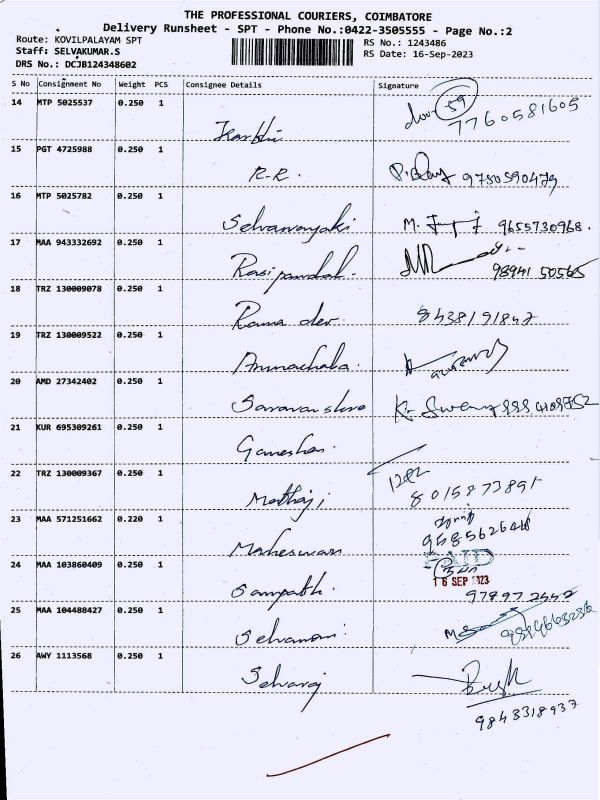 THE PROFESSIONAL COURIERS, COIMBATORE
Delivery Runsheet - SPT - Phone No.:0422-3505555 - Page No.:2
Route: KOVILPALAYAM SPT RS No.: 1243486
Staff: SELVAKUMAR.S RS Date: 16-Sep-2023
DRS No.: DCJB124348602
S No Consignment No Weight PCS Consignee Details Signature
14 MTP 5025537 0.250 1 59
7760581605
15 PGT 4725988 0.250 1
R-R. 9750590479
16 MTP 5025782 0.250 1
Selvanayaki M. 9655730968.
17 MAA 943332692 0.250 1
98941 50565
18 TRZ 130009078 0.250 1
Rama dev. 8438191847
19 TRZ 130009522 0.250 1
20 AMD 27342402 0.250 1
21 KUR 695309261 0.250 1
Ganeshan.
22 TRZ 130009367 0.250 1
8015873891
23 MAA 571251662 0.220 1
Maheswari
24 MAA 103860409 0.250 1 PAID
16 SEP 2023
Sampath.
25 MAA 104488427 0.250 1
Selvamani.
26 AWY 1113568 0.250 1
Selvaraj
9843318937